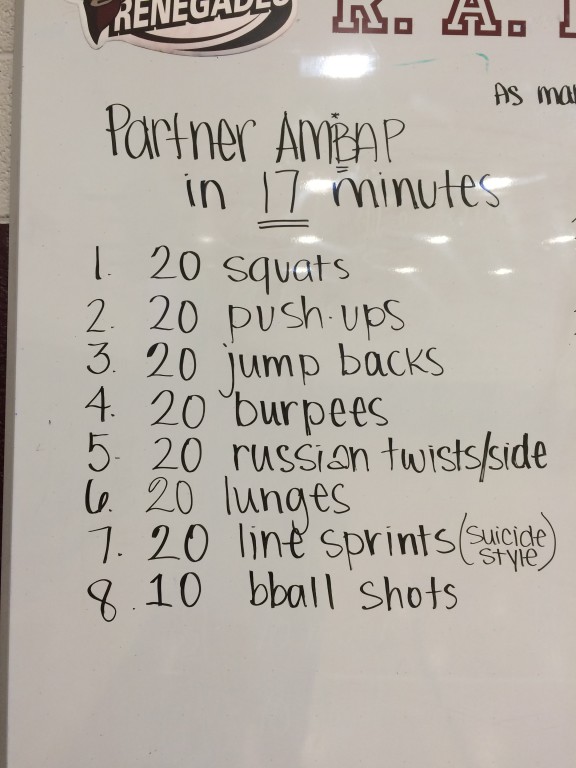 RENEGADES
R. A.
As
Partner AMBAP
in 17 minutes
1. 20 squats
2. 20 push-ups
3. 20 jump backs
4. 20 burpees
5- 20 russian twists/side
6. 20 lunges
7. 20 line sprints (suicide style)
8. 10 bball shots